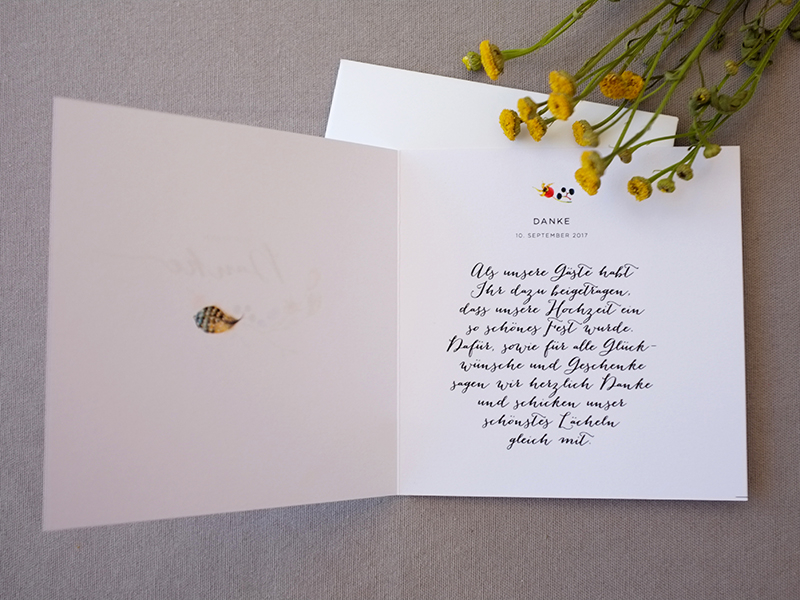 Danke
DANKE
10. SEPTEMBER 2017
Als unsere Gäste habt
Ihr dazu beigetragen,
dass unsere Hochzeit ein
so schönes Fest wurde.
Dafür, sowie für alle Glück-
wünsche und Geschenke
sagen wir herzlich Danke
und schicken unser
schönstes Lächeln
gleich mit.